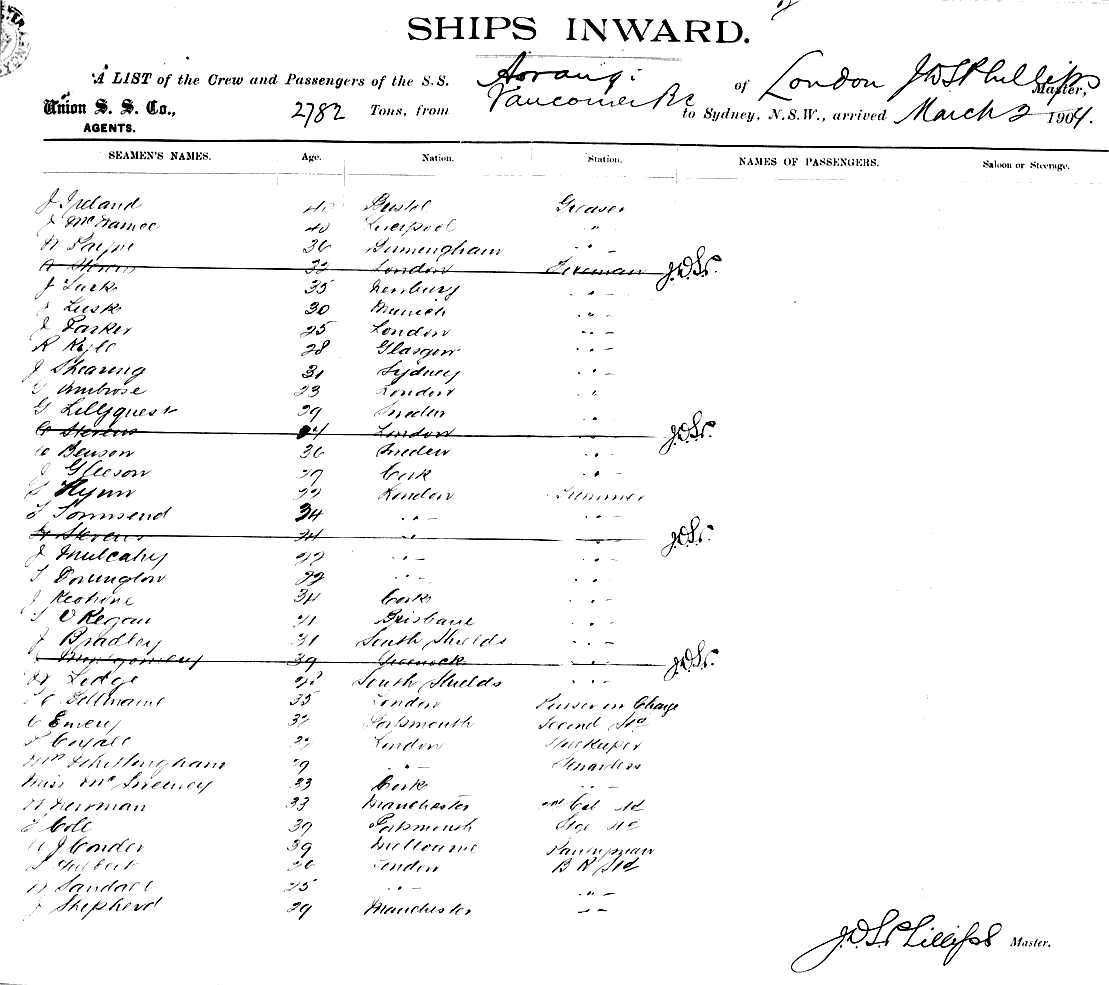 SHIPS INWARD.
A LIST of the Crew and Passengers of the S.S. Aorangi of London J.D.S. Phillips Master,
Union S. S. Co., AGENTS. 2782 Tons, from Vancouver B.C. to Sydney, N.S.W., arrived March 2 1904.
SEAMEN'S NAMES. Age. Nation. Station. NAMES OF PASSENGERS. Saloon or Steerage.
J Ireland 40 Bristol Greaser
J McNamee 40 Liverpool " –
Payne 36 Birmingham " –
Stevens 33 London Fireman J.D.S.P.
J 35 " –
Lusk 30 Munich " –
J Parker 25 London " –
R Kyle 28 Glasgow " –
J Shearing 31 Sydney " –
Ambrose 23 London "
G Lillyquest 29 Sweden "
Stevens 24 London " J.D.S.P.
Benson 36 Sweden "
J Gleeson 27 Cork " –
Flynn 22 London Trimmer
T Townsend 34 " – " –
Stevens 24 " – " – J.D.S.P.
J Mulcahy 22 " – " –
T 22 " – " –
J Keohane 34 Cork " –
O'Regan 21 Brisbane " –
J Bradley 31 South Shields " –
Montgomery 39 Greenock " – J.D.S.P.
Ledge South Shields " –
35 London Purser in Charge
Emery 32 Portsmouth Second Std
27 London Storekeeper
Mrs Whillingham 29 " – Stewardess
Miss McSweeney 33 Cork " –
Newman 33 Manchester 2nd Cel Std
Cole 39 Portsmouth Stge Std
J Conder 39 Melbourne Pantryman
26 London B R Std
Sandall 25 " – " –
J Shepherd 29 Manchester " –
J.D.S. Phillips Master.